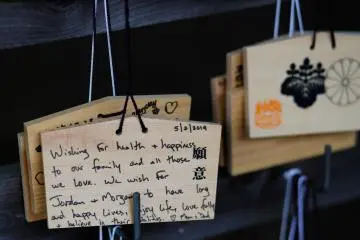 5/2/2019
Wishing for health + happiness
to our family and all those
we love. We wish for
Jordan + Morgan to have long
and happy lives, enjoy life fully
+ believe in their abilities. ♡ Mom + Dad
願意